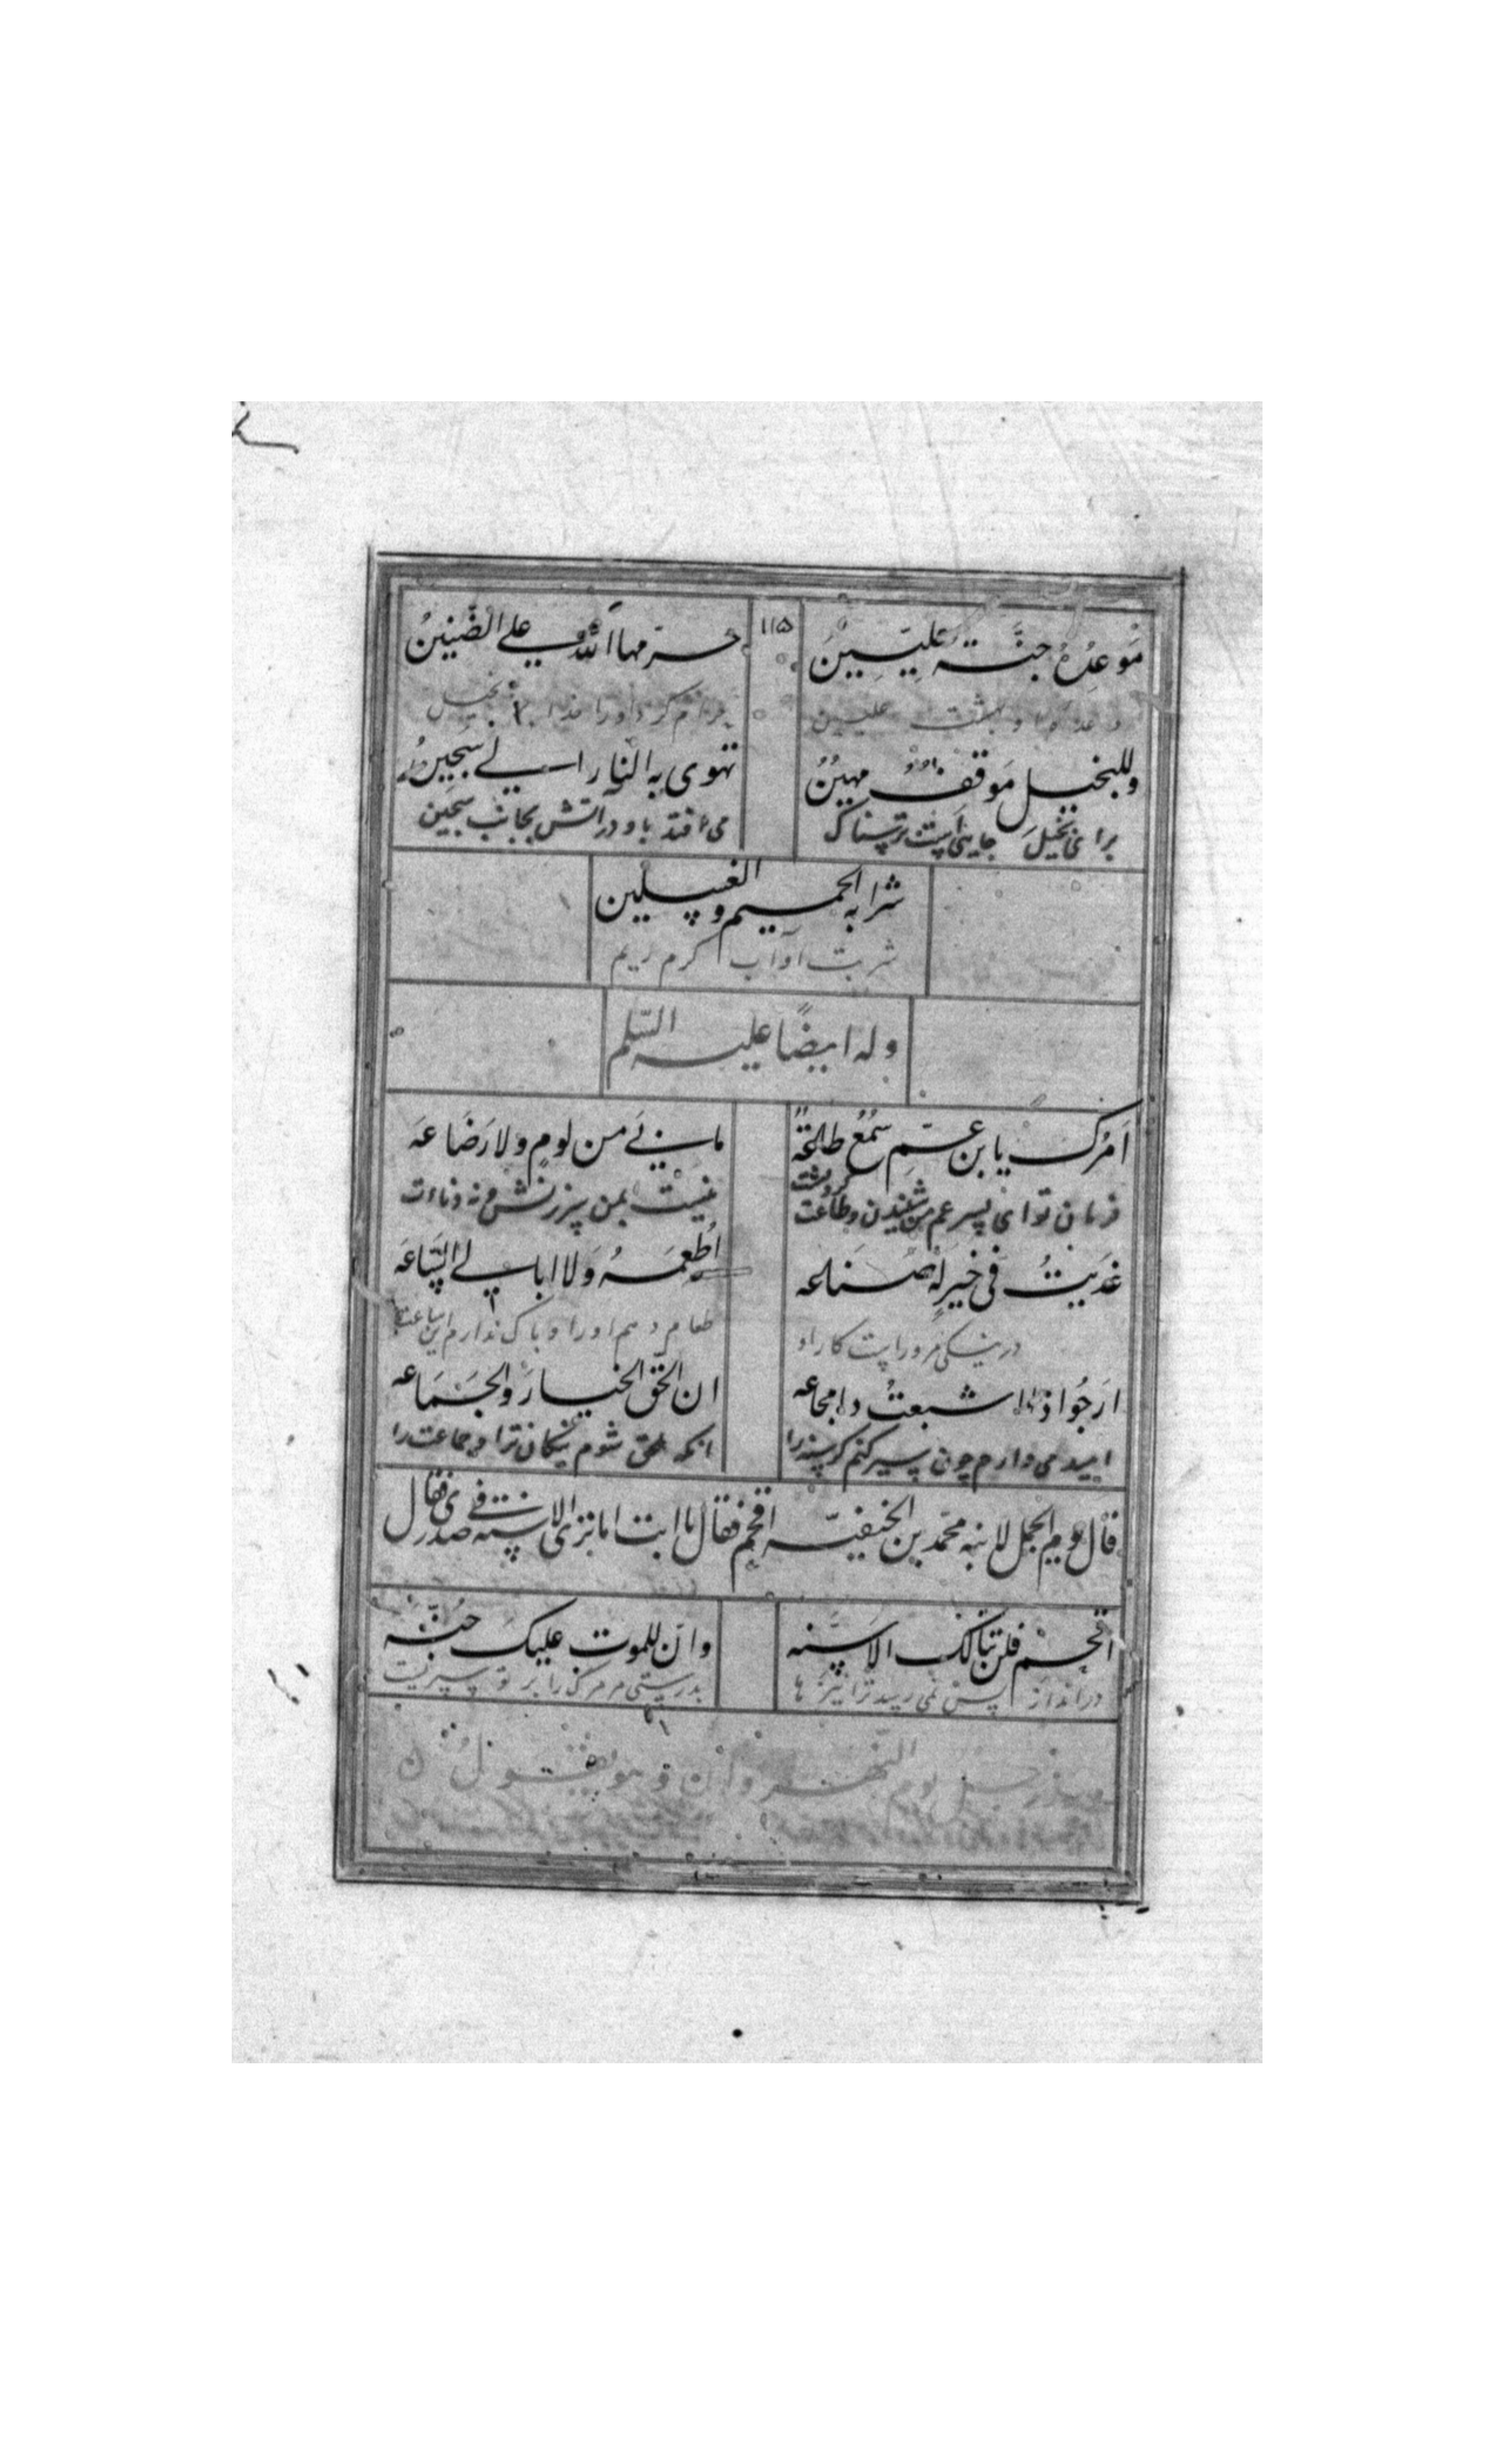 ۱۱۵
مَوعِدُهُ جنَّتة عِلِيّيِنَ حرّمها الله على الضَّنِينُ
وعده او بهشت علیین حرام کرد او را خدا بر بخیل
وللبخيل مَوقف مهينُ تهوى به النار الى سَجّينُ
برای بخیل جایی است ترسناک می افتد باو در آتش بجانب سجین
شرابه الحميم والغسلين
شربت او آب گرم ریم
وله ايضًا عليه السّلم
اَمرُك يابن عَمّ سَمعُ طاعَة ما بي من لومٍ ولا رَضَاعَه
فرمان تو ای پسر عم من شنیدن و طاعت کردنست نیست بمن سرزنش و نه دناءت
غديتُ فى خير له صناعه اُطعمهُ وَلا ابالي السّاعَه
در نیکی مر وراست کار او طعام دهم او را و باک ندارم این ساعت
ارجُوا اذا اشبعتُ ذا مجاعه ان الحق الخيار والجَمَاعه
امید می دارم چون سیر کنم گرسنه را انکه لاحق شوم نیکان ترا و جماعت را
قال يوم الجمل لابنه محمّد بن الحنفيّه اقحم فقال يا ابت اما ترى الاسنة في صدرى فقال
اقحم فلن تنالك الاسنّه وانّ للموت عليك جُنّه
در انداز پس نمی رسد ترا نیزه ها بدرستی مر مرگ را بر تو سپریست
يوم النّهروان وهو يقول